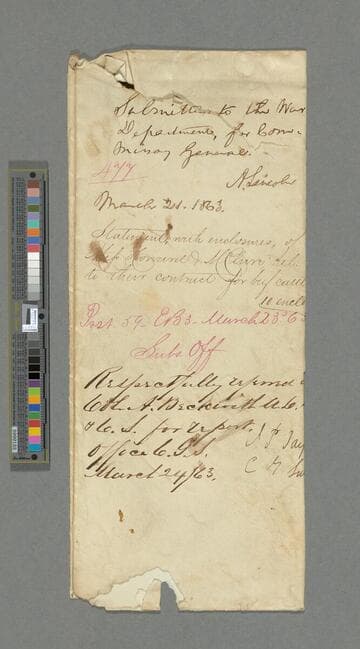 Submitted to the War
Department, for Com-
missary General.
477
A. Lincoln
March 21. 1863.
Statement, with enclosures, of
to their contract for beef cattle
10 enclo
59 EB3 March 23d 63
Subs Off
Respectfully
Col. A. Beckwith A.D.C.
& C. S. for report.
Office C. G. S.
March 24/63.
J. P. Tay
C G Su